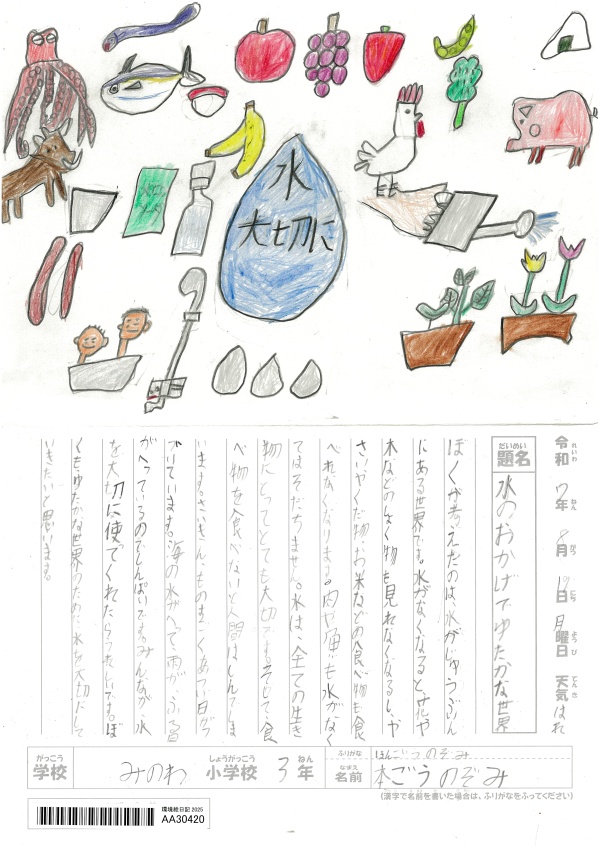 水
大切に
令和7年8月18日月曜日 天気 はれ
れいわ ねん がつ にち ようび てんき
だいめい
題名
水のおかげでゆたかな世界
ぼくが考えたのは、水がじゅうぶん
にある世界です。水がなくなると、花や
木などのしょく物も見れなくなるし、や
さいやくだ物、お米などの食べ物も食
べれなくなります。肉や魚も水がなく
てはそだちません。水は、全ての生き
物にとってとても大切です。そして、食
べ物を食べないと人間はしんでしま
います。さいきん、ものすごくあつい日がつ
づいています。海の水がへって、雨がふる量
がへっているのでしんぱいです。みんなが、水
を大切に使てくれたらうれしいです。ぼ
くもゆたかな世界のために、水を大切にして
いきたいと思います。
がっこう
学校
みのわ
しょうがっこう
小学校
3
ねん
年
ふりがな
ほんごうのぞみ
なまえ
名前
本ごうのぞみ
(漢字で名前を書いた場合は、ふりがなをふってください)
環境絵日記 2025
AA30420